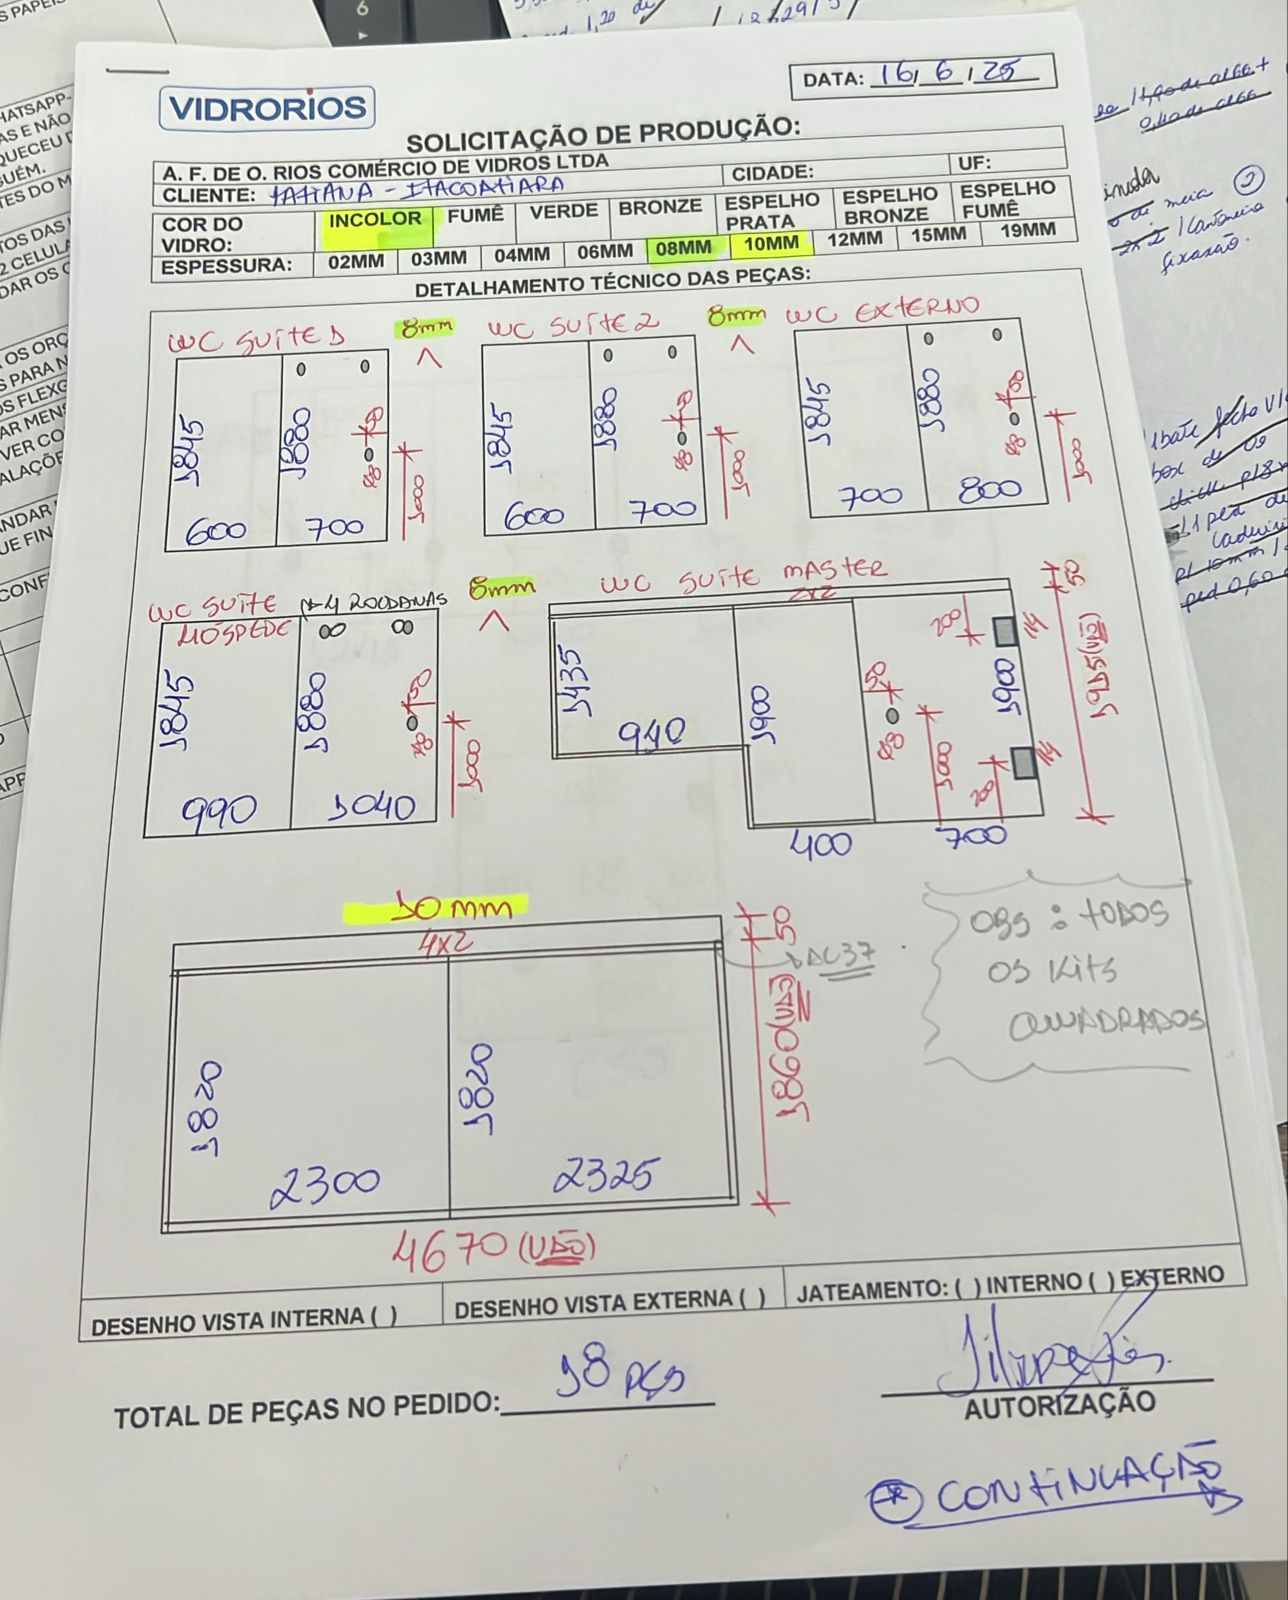 DATA: 16/6/25
VIDRORIOS
SOLICITAÇÃO DE PRODUÇÃO:
A. F. DE O. RIOS COMÉRCIO DE VIDROS LTDA CIDADE: UF:
CLIENTE: TATIANA - ITACOATIARA
COR DO VIDRO: INCOLOR FUMÊ VERDE BRONZE ESPELHO PRATA ESPELHO BRONZE ESPELHO FUMÊ
ESPESSURA: 02MM 03MM 04MM 06MM 08MM 10MM 12MM 15MM 19MM
DETALHAMENTO TÉCNICO DAS PEÇAS:
WC SUITE 1 8mm WC SUITE 2 8mm WC EXTERNO
1845 1880 50 1000
600 700
1845 1880 50 1000
600 700
1845 1880 50 1000
700 800
WC SUITE HÓSPEDE 4 ROLDANAS 8mm
1845 1880 50 1000
990 1040
WC SUITE MASTER
2x2
1435 940
1900 50 1000
200 1900 200
50 1955 (VÃO)
400 700
10mm
4x2
50
AL37
1820 1820
1860 (VÃO)
2300 2325
4670 (VÃO)
OBS: TODOS
OS KITS
QUADRADOS
DESENHO VISTA INTERNA ( ) DESENHO VISTA EXTERNA ( ) JATEAMENTO: ( ) INTERNO ( ) EXTERNO
TOTAL DE PEÇAS NO PEDIDO: 18 PÇS
AUTORIZAÇÃO
* CONTINUAÇÃO